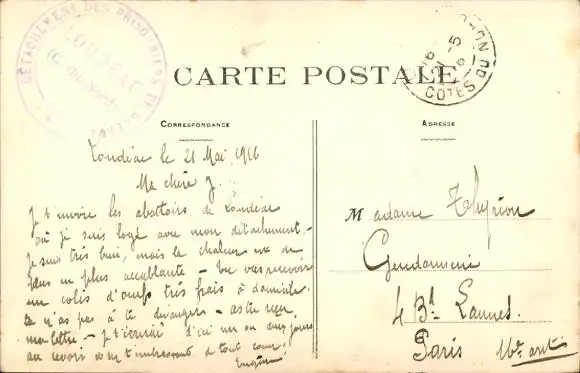 DÉTACHEMENT DES PRISONNIERS DE GUERRE
LOUDÉAC
(Côtes-du-Nord)
21-5
16
CÔTES DU NORD
CARTE POSTALE
CORRESPONDANCE
ADRESSE
Loudéac le 21 Mai 1916
Ma chère J...
Je t'envoie les abattoirs de Loudéac
où je suis logé avec mon détachement -
je suis très bien, mais la chaleur est de
plus en plus accablante - tu vas recevoir
un colis d'oeufs très frais à domicile
tu n'as pas à te déranger - as tu reçu
ma lettre - je t'écrirai d'ici un ou deux jours
au revoir en t'embrassant de tout coeur
Eugène
Madame Thyrion
Gendarmerie
4 Bd Lannes.
Paris 16e art